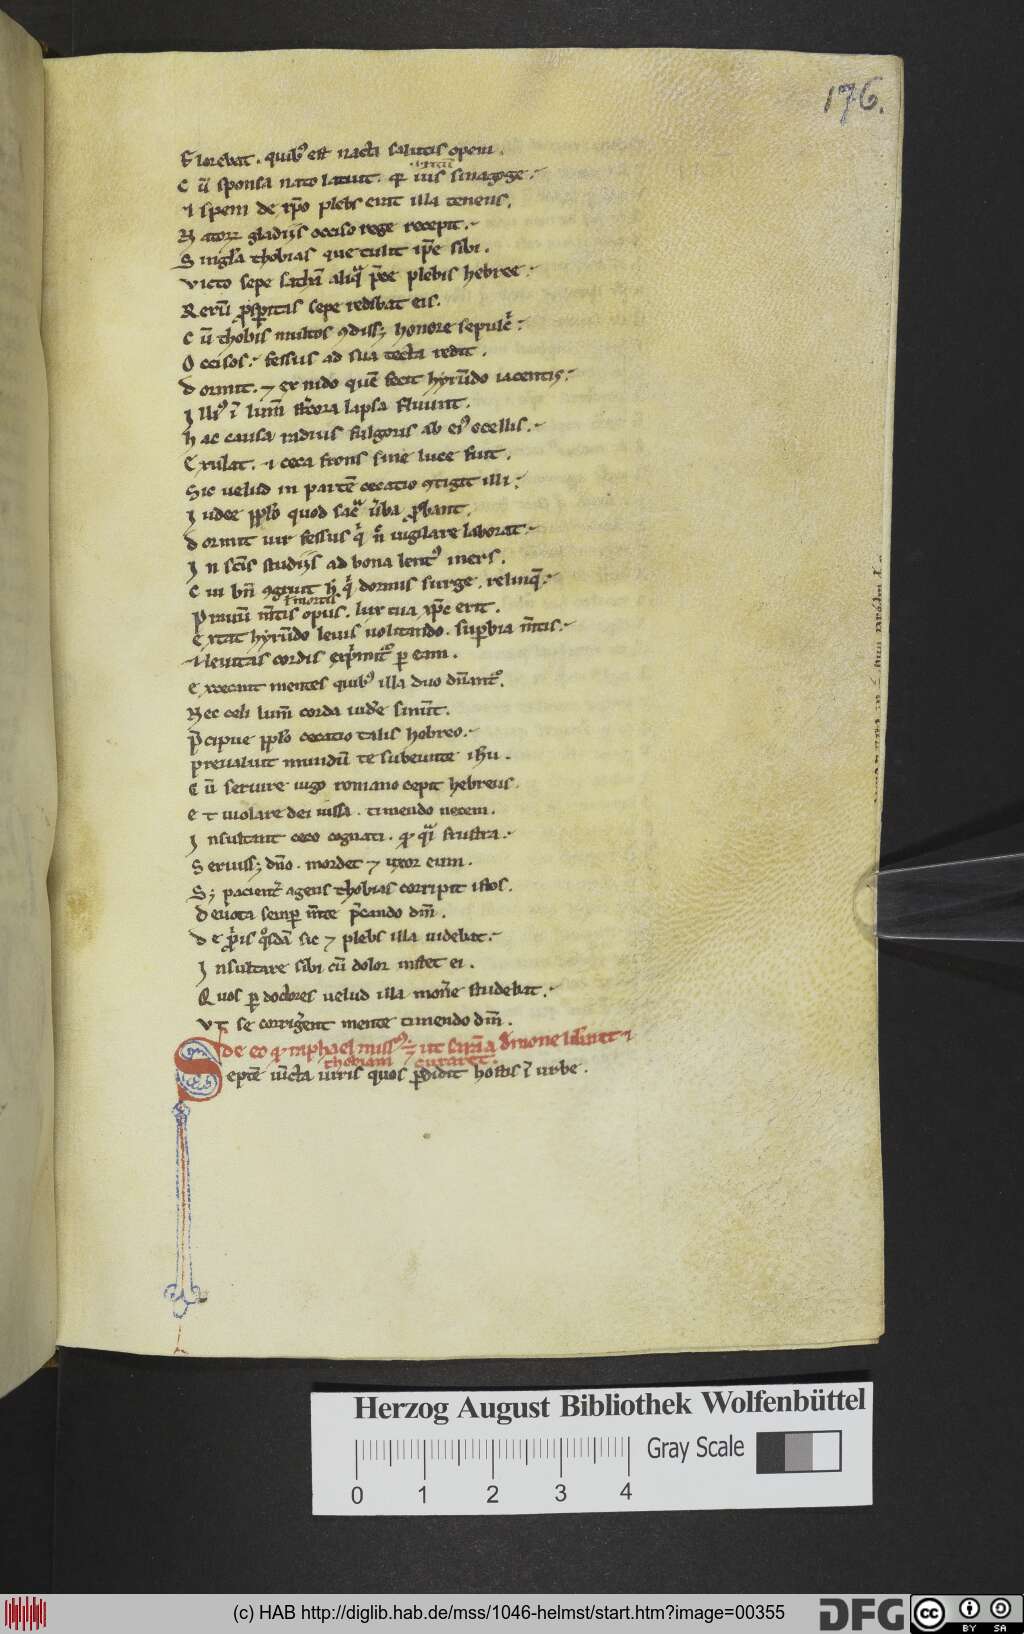 176.
Florebat. quibꝰ est nacta salutis opem.
Cū sponsa nato latuit. qr ius sinagoge.
I spem de xp̄o plebs erit illa tenens.
Natorꝝ gladijs occiso rege recepit.
Singl'a thobias que tulit ip̄e sibi.
Victo sepe sathā aliqͣ p̄ce plebis hebree.
Rerū ꝓsꝑitas sepe redibat eis.
Cū thobis multos ꝯdissꝫ honore sepulcͥ
Occisos. fessus ad sua tecta redit.
Dormit. ⁊ ex nido quē fecit hyrūdo iacentis.
Illiꝰ ī lum̄ st̄cora lapsa fluunt.
Hac causa radius fulgoris ab eiꝰ ocellis.
Exulat. ⁊ ceca frons sine luce fuit.
Sic uelud in partē cecatio ꝯtigit illi.
Iudee pplō quod sacͣ ūba ꝓbant.
Dormit uir fessus qͥ n̄ uigilare laborat.
In sc̄is studijs ad bona lentꝰ iners.
Cui bn̄ ꝯgruit h̄ qͥ dormis surge. relinq̄.
Primū m̄tis opus. lux tua xp̄c erit.
Extat hyrūdo leuis uolitando. suꝑbia m̄tis.
⁊ leuitas cordis exp̄mitꝰ ꝑ eam.
Excecant mentes quibꝰ illa duo dn̄antꝰ.
Nec celi lum̄ corda uidēe sinūt.
P̄cipue pplō cecatio talis hebreo.
Preualuit mundū te subeunte ihu.
Cū seruire iugo romano cepit hebreus.
Et uiolare dei iussa. timendo necem.
Insultant ceco cognati. ꝓ qͣ frustra.
Seruissꝫ dn̄o. mordet ⁊ uxor eum.
Sꝫ pacient̄ agens thobias corripit istos.
Deuota semꝑ m̄te p̄cando dm̄.
De pͥis qͦsdā sic ⁊ plebs illa uidebat.
Insultare sibi cū dolor instet ei.
Quos ꝑ doctores uelud illa monēe studebat.
Vt se corriḡent mente timendo dm̄.
De eo ꝙ raphael missꝰ ē ut sarrā a demone lib̄aret ⁊
thobiam curaret.
Septē iūcta uiris quos ꝑdidit hostis ī urbe.
Herzog August Bibliothek Wolfenbüttel
Gray Scale
0 1 2 3 4
(c) HAB http://diglib.hab.de/mss/1046-helmst/start.htm?image=00355
DFG
cc
BY SA